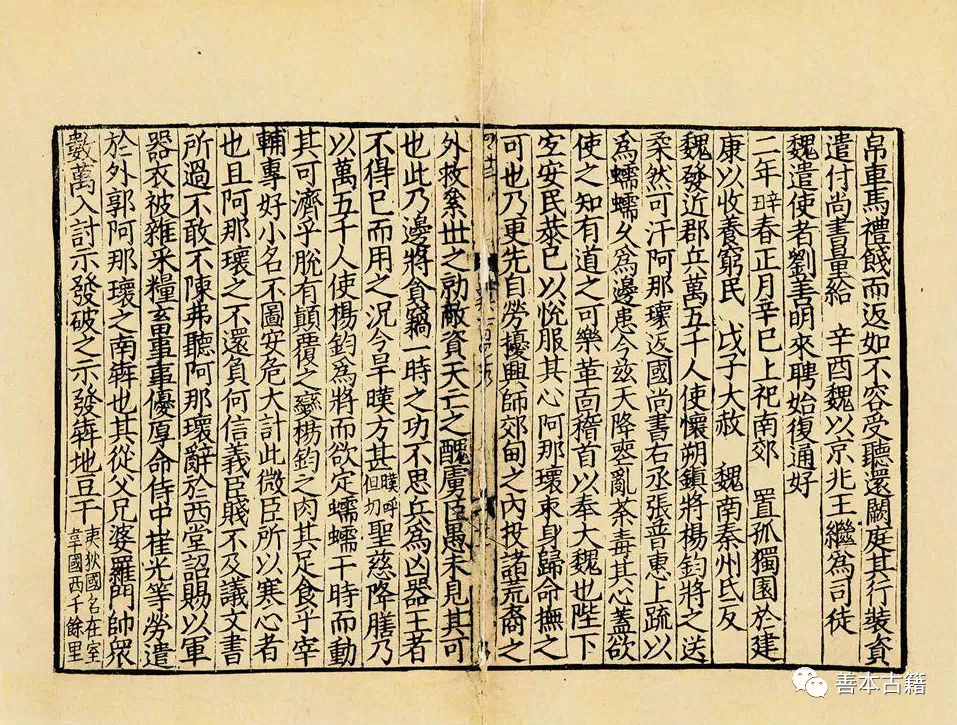 帛車馬禮餞而返如不容受聽還闕庭其行裝資
遣付尚書量給 辛酉魏以京兆王繼為司徒
魏遣使者劉善明來聘始復通好
二年 春正月辛巳上祀南郊 置孤獨園於建
康以收養窮民 戊子大赦 魏南秦州氐反
魏發近郡兵萬五千人使懷朔鎮將楊鈞將之送
柔然可汗阿那瓌返國尚書右丞張普惠上疏以
為蠕蠕久為邊患今茲天降喪亂荼毒其心蓋欲
使之知有道之可樂革面稽首以奉大魏也陛下
宜安民恭己以悅服其心阿那瓌束身歸命撫之
可也乃更先自勞擾興師郊甸之內投諸荒裔之
外救累世之勍敵資天亡之醜虜臣愚未見其可
也此乃邊將貪竊一時之功不思兵為凶器王者
不得已而用之况今旱暵方甚暵呼但切聖慈降膳乃
以萬五千人使楊鈞為將而欲定蠕蠕干時而動
其可濟乎脫有顛覆之變楊鈞之肉其足食乎宰
輔專好小名不圖安危大計此微臣所以寒心者
也且阿那瓌之不還負何信義臣賤不及議文書
所過不敢不陳弗聽阿那瓌辭於西堂詔賜以軍
器衣被雜采糧畜事事優厚命侍中崔光等勞遣
於外郭阿那瓌之南奔也其從父兄婆羅門帥眾
數萬入討示發破之示發奔地豆干 夷狄國名在室韋國西千餘里
善本古籍